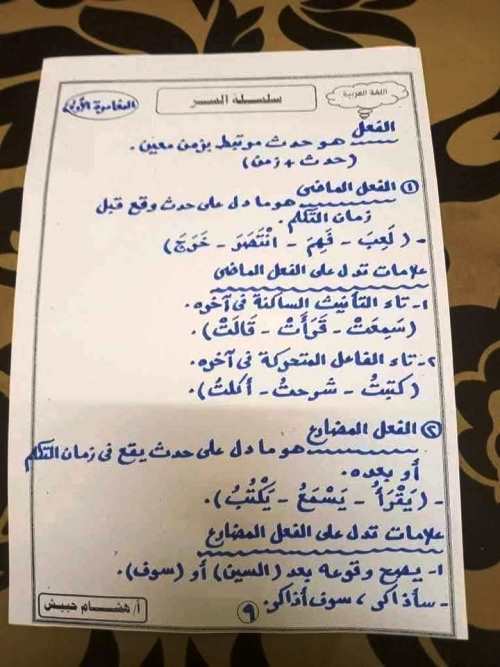 اللغة العربية
سلسلة السر
المحاضرة الأولى
الفعل هو حدث مرتبط بزمن معين.
(حدث + زمن)
① الفعل الماضى
هو ما دل على حدث وقع قبل
زمان التكلم.
- (لَعِبَ - فَهِمَ - انْتَصَرَ - خَرَجَ)
علامات تدل على الفعل الماضى
١- تاء التأنيث الساكنة فى آخره.
(سَمِعَتْ - قَرَأَتْ - قَالَتْ).
٢- تاء الفاعل المتحركة فى آخره.
(كتبتُ - شرحتُ - أكلتُ).
② الفعل المضارع
هو ما دل على حدث يقع فى زمان التكلم
أو بعده.
- (يَقْرَأُ - يَسْمَعُ - يَكْتُبُ).
علامات تدل على الفعل المضارع
١- يصح وقوعه بعد (السين) أو (سوف).
- سأذاكر، سوف أذاكر.
أ/ هشام حبيش
٩